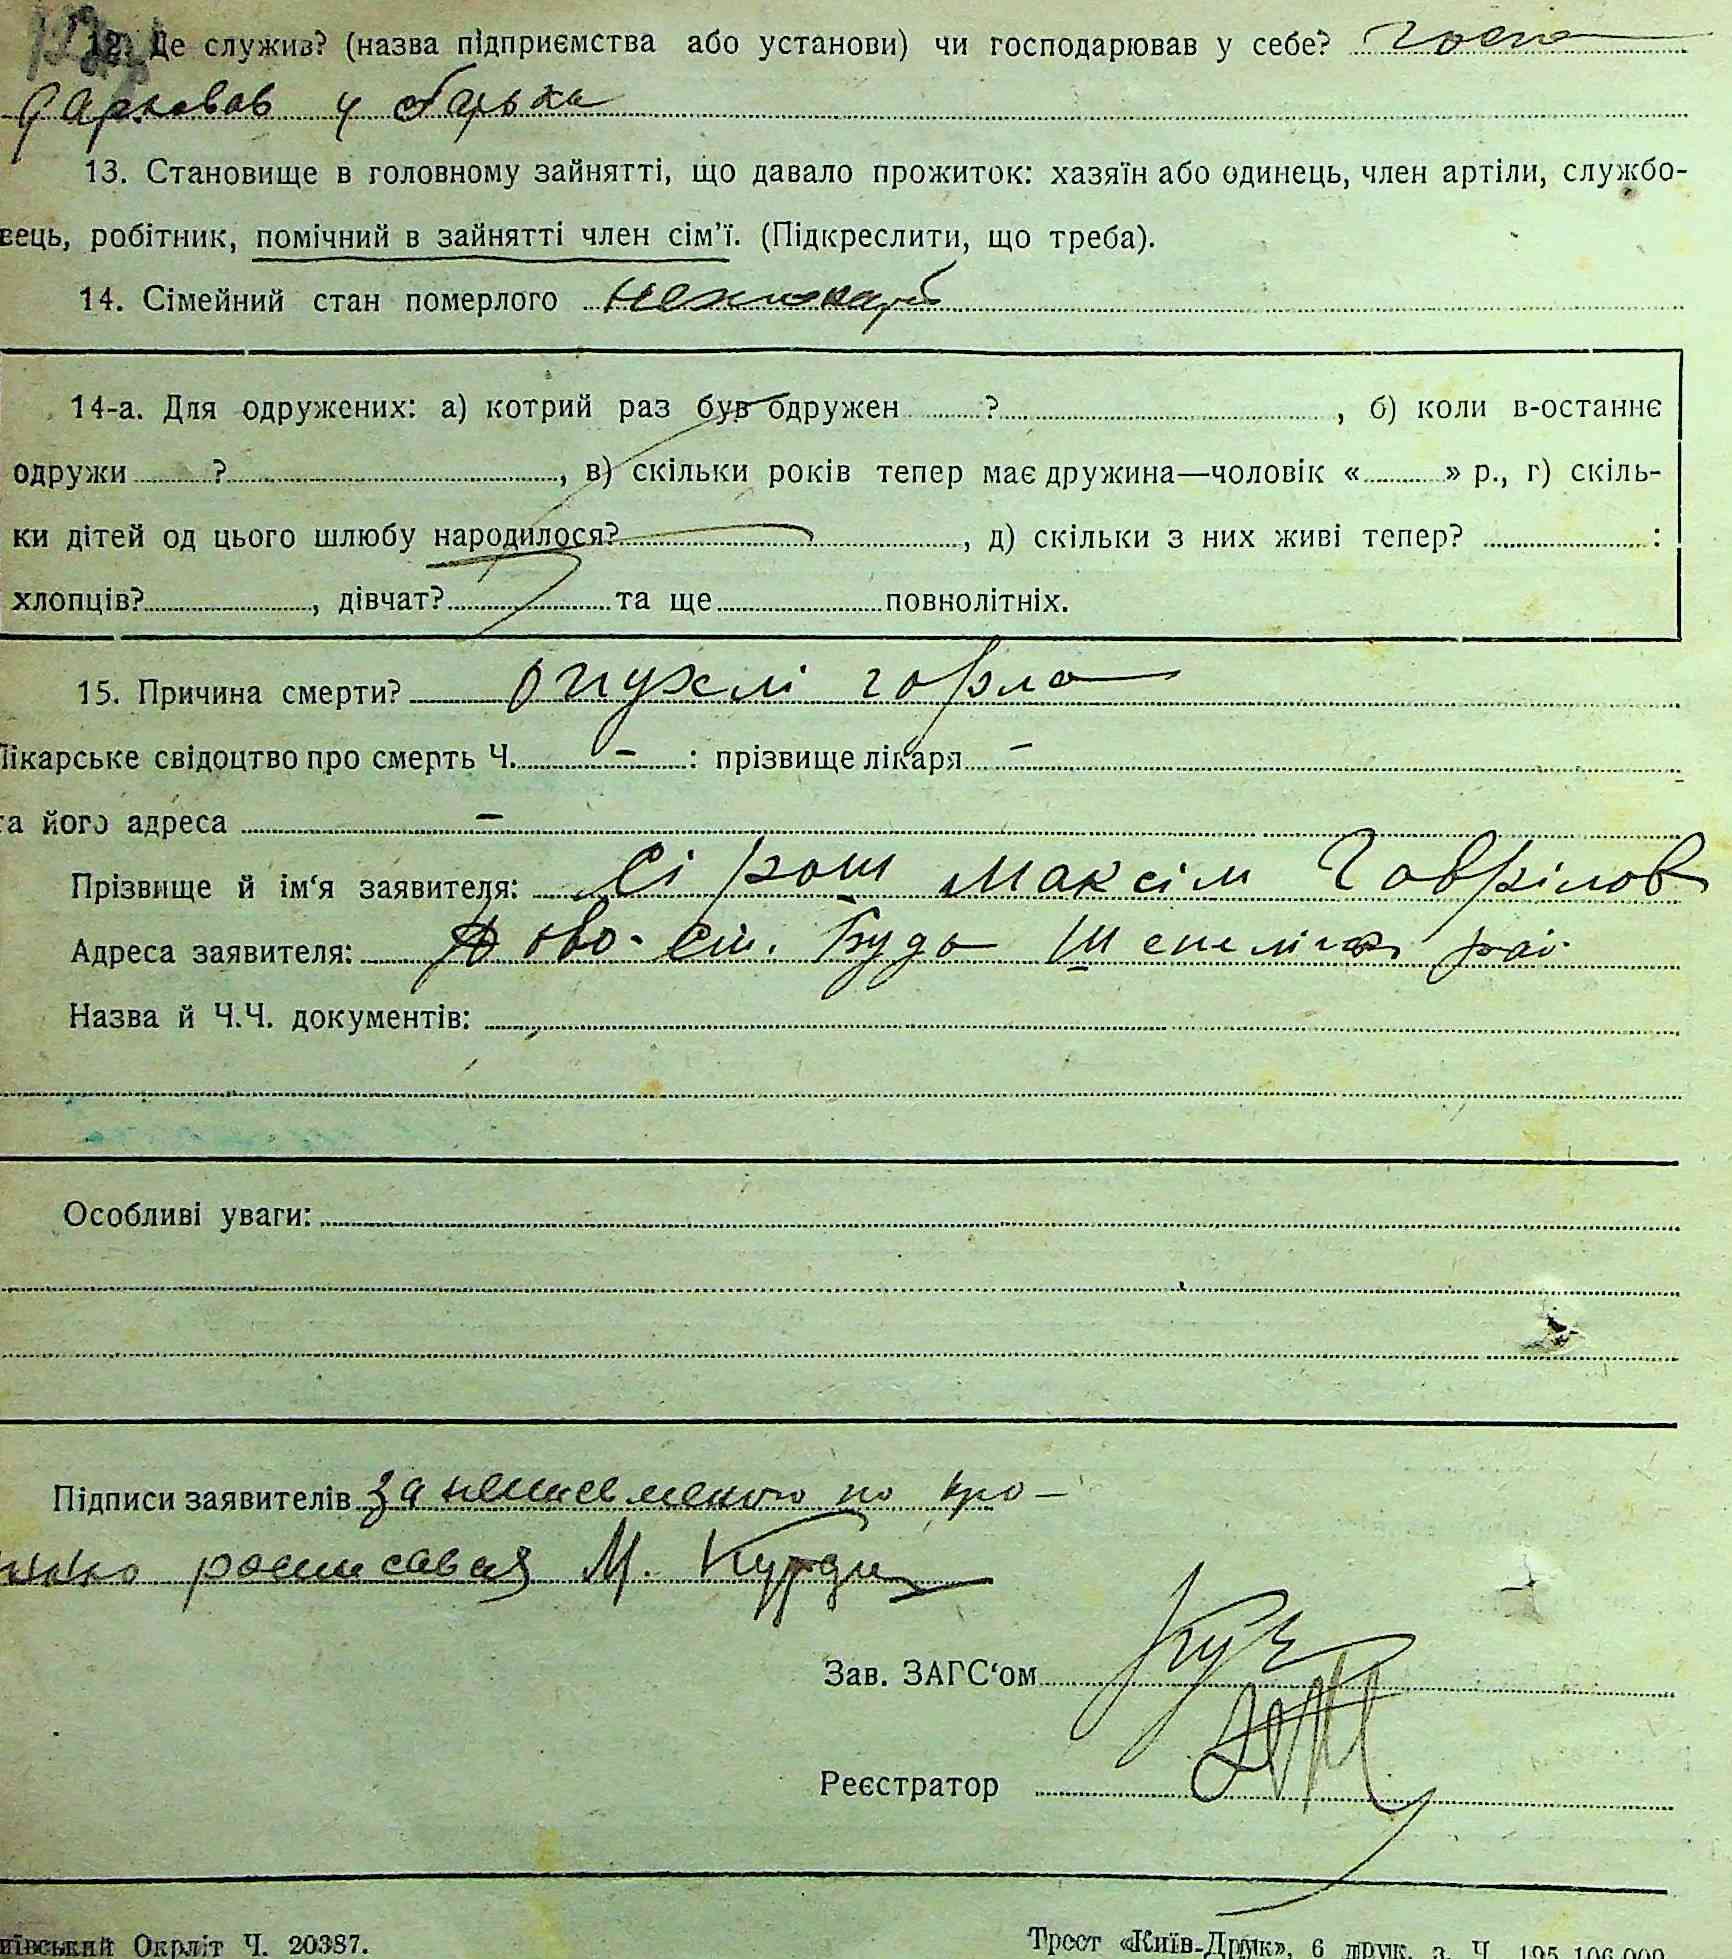 12. Де служив? (назва підприємства або установи) чи господарював у себе? госпо
дарював у батька
13. Становище в головному зайнятті, що давало прожиток: хазяїн або одинець, член артіли, службо-
вець, робітник, помічний в зайнятті член сім'ї. (Підкреслити, що треба).
14. Сімейний стан померлого
14-а. Для одружених: а) котрий раз був одружен ? , б) коли в-останнє
одружи ? , в) скільки років тепер має дружина—чоловік « » р., г) скіль-
ки дітей од цього шлюбу народилося? , д) скільки з них живі тепер? :
хлопців? , дівчат? та ще повнолітніх.
15. Причина смерти? опухлі горло
Лікарське свідоцтво про смерть Ч. – : прізвище лікаря –
та його адреса –
Прізвище й ім'я заявителя: Сірош Максім Гаврілов
Адреса заявителя: Ново-Ші. Буда Шепеліцк рай.
Назва й Ч.Ч. документів:
Особливі уваги:
Підписи заявителів за неписьменого по про-
росписавсЯ М.
Зав. ЗАГС'ом
Реєстратор
иївський Окрліт Ч. 20387.
Трест «Київ-Друк», 6 друк. з. Ч. 195-106.000